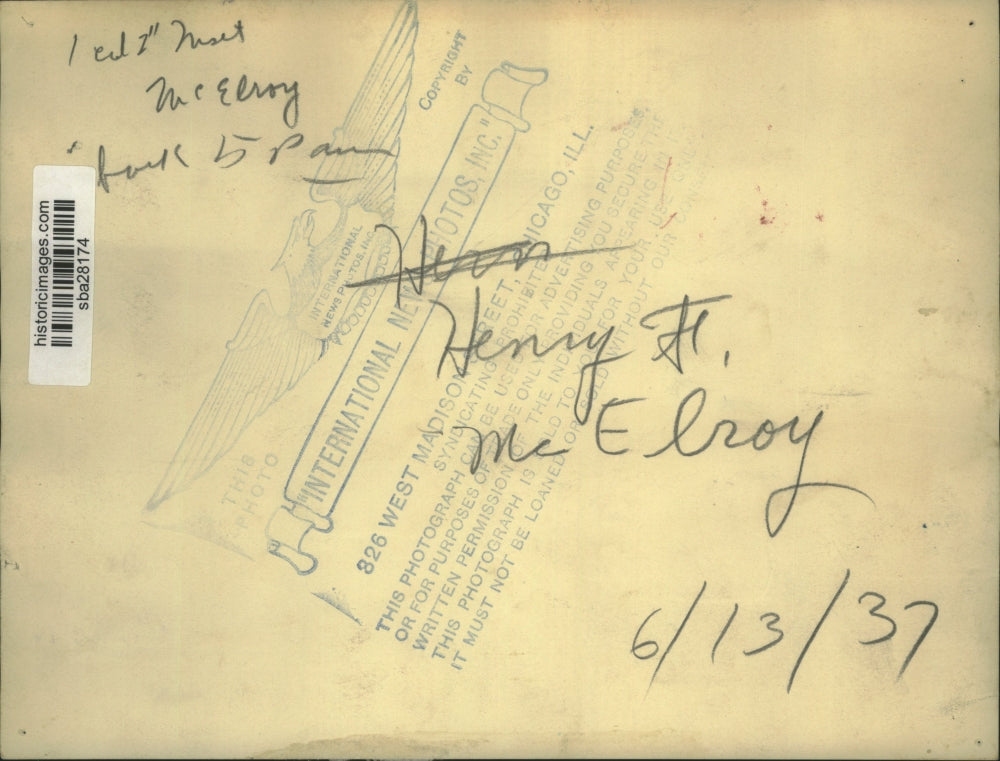 1 col 2" Inset
McElroy
back to Pan
COPYRIGHT
BY
"INTERNATIONAL NEWS PHOTOS, INC."
INTERNATIONAL
NEWS PHOTOS, INC.
THIS
PHOTO
826 WEST MADISON STREET, CHICAGO, ILL.
THIS PHOTOGRAPH CAN BE USED FOR ADVERTISING PURPOSES,
OR FOR PURPOSES OF
WRITTEN PERMISSION OF THE INDIVIDUALS APPEARING IN
THIS PHOTOGRAPH IS SOLD TO FOR YOUR USE ONLY
IT MUST NOT BE LOANED OR SOLD WITHOUT OUR CONSENT
Henry H.
McElroy
6/13/37
historicimages.com
sba28174